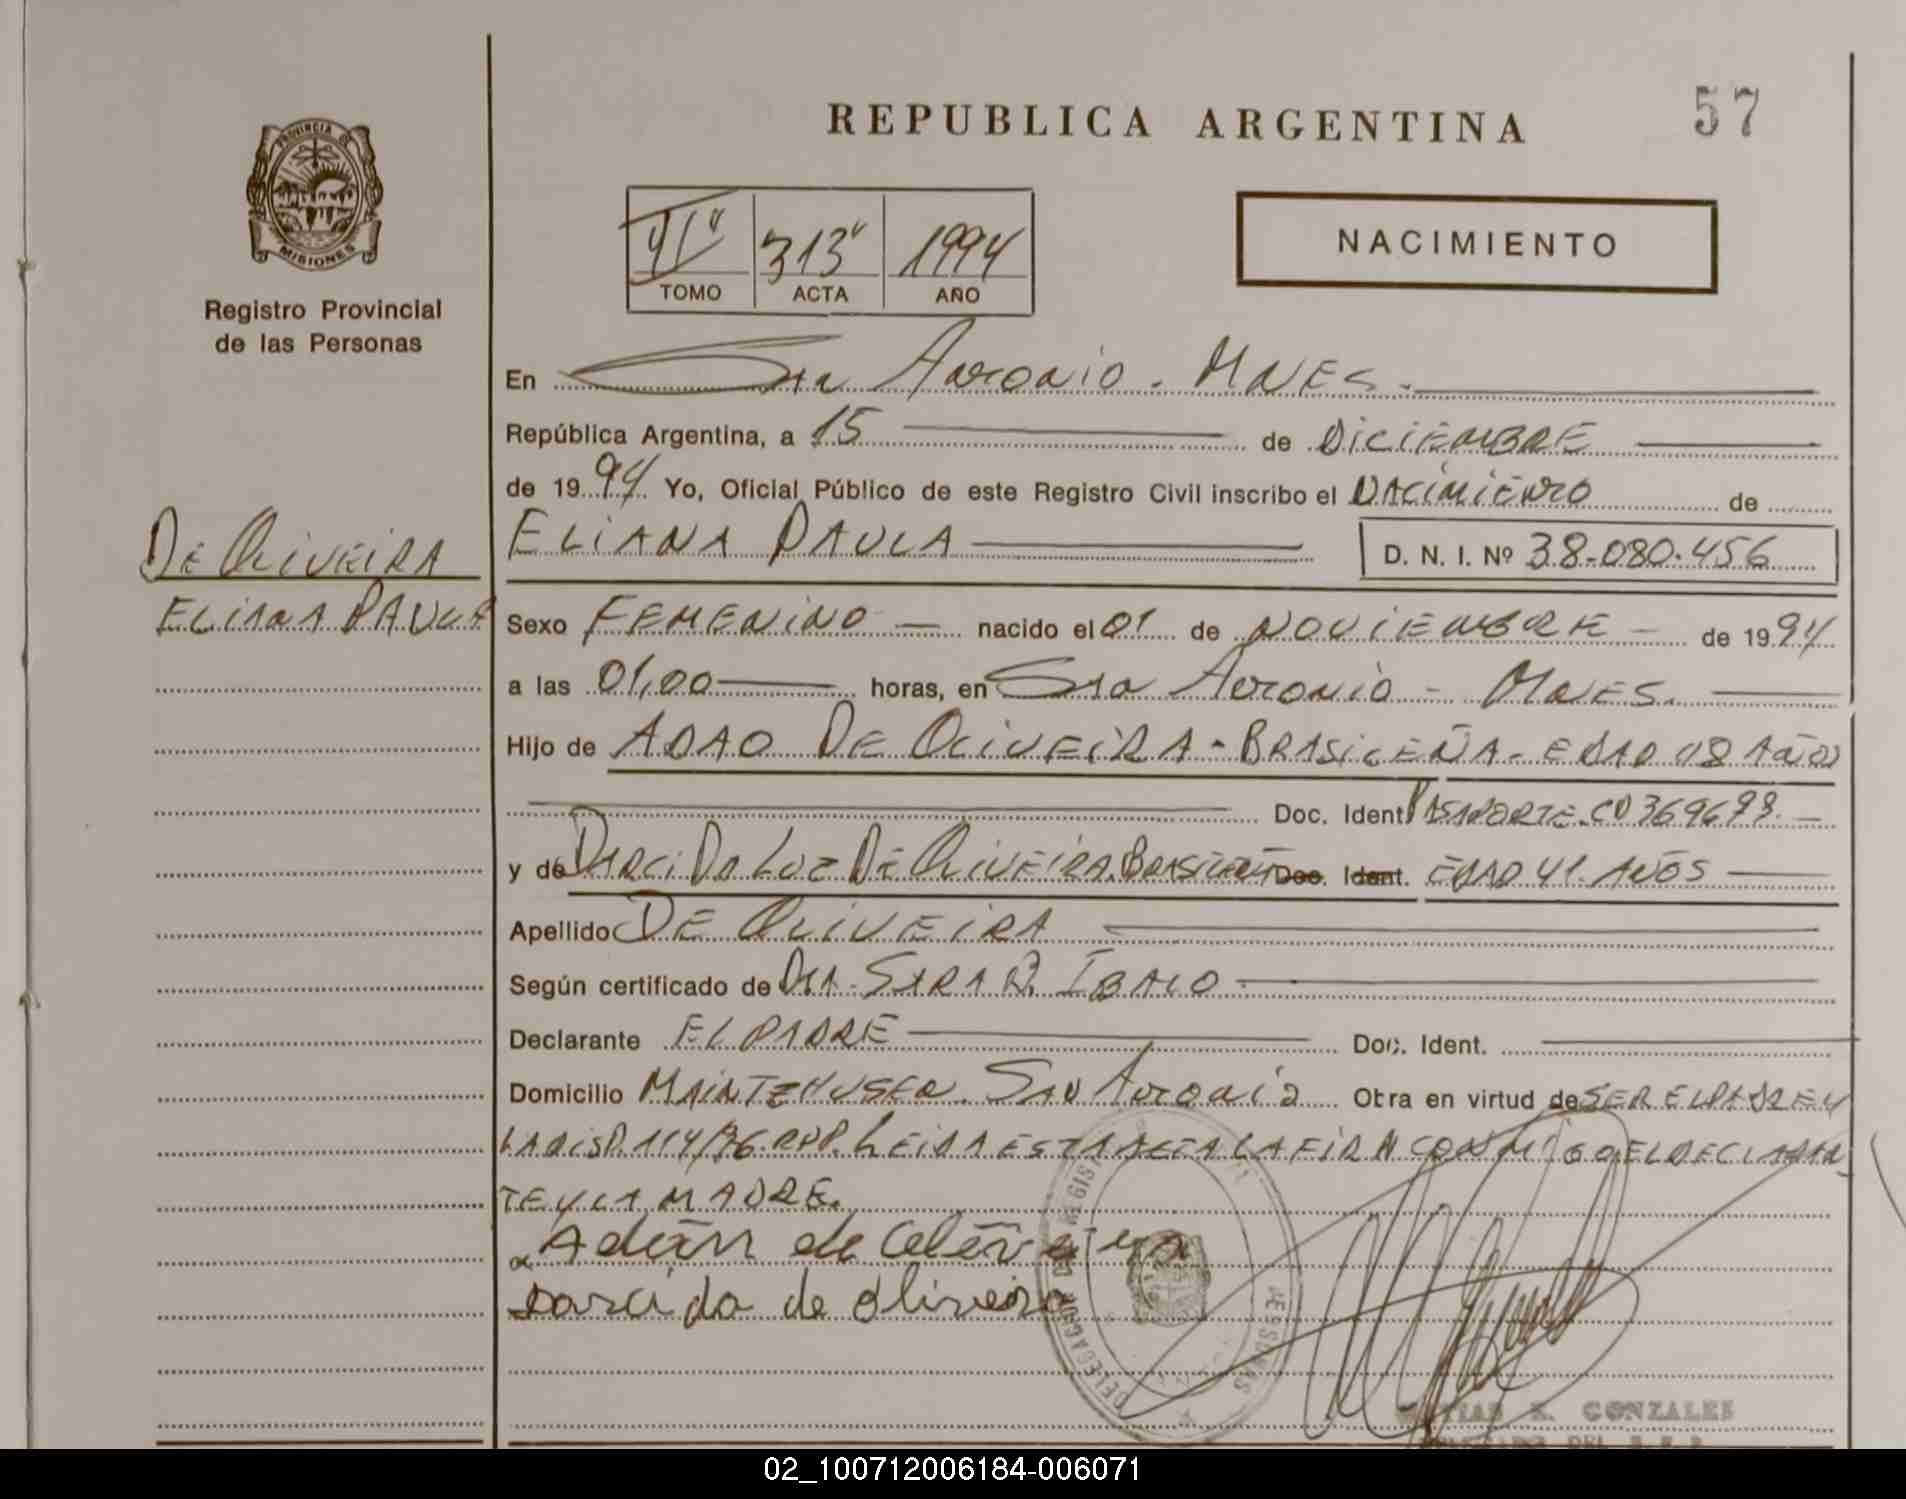 REPUBLICA ARGENTINA
57
PROVINCIA DE
MISIONES
Registro Provincial
de las Personas
VIº 313º 1994
TOMO ACTA AÑO
NACIMIENTO
En San Antonio - Mnes.
República Argentina, a 15 de DICIEMBRE
de 1994 Yo, Oficial Público de este Registro Civil inscribo el NACIMIENTO de
ELIANA PAULA D. N. I. Nº 38.080.456
DE OLIVEIRA
ELIANA PAULA
Sexo FEMENINO nacido el 01 de NOVIEMBRE de 1994
a las 01,00 horas, en San Antonio - Mnes.
Hijo de ADAO DE OLIVEIRA - BRASILEÑA - EDAD 48 AÑOS
Doc. Ident. PASAPORTE CD
y de DARCI DA LUZ DE OLIVEIRA. Doc. Ident. EDAD 41 AÑOS
Apellido DE OLIVEIRA
Según certificado de DRA. SARA R.
Declarante EL PADRE Doc. Ident.
Domicilio SAN ANTONIO Otra en virtud de SER EL PADRE Y
LA DISP. 114/76. RPP. LEIDA ESTA ACTA LA FIRMA CONMIGO EL DECLARAN
TE Y LA MADRE.
Adán de
darci da de oliveira
DELEGACION REGISTRO PERSONAS
GONZALEZ
02_100712006184-006071